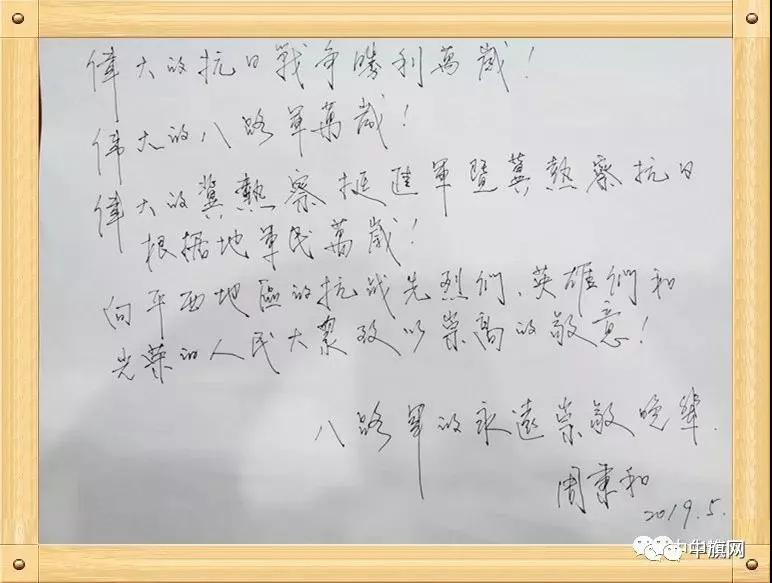 偉大的抗日戰争勝利萬歲！
偉大的八路軍萬歲！
偉大的冀熱察挺進軍暨冀熱察抗日
根据地軍民萬歲！
向平西地區的抗战先烈們、英雄們和
光荣的人民大衆致以崇高的敬意！
八路軍的永遠崇敬晚輩.
周秉和
2019.5.
中旗网